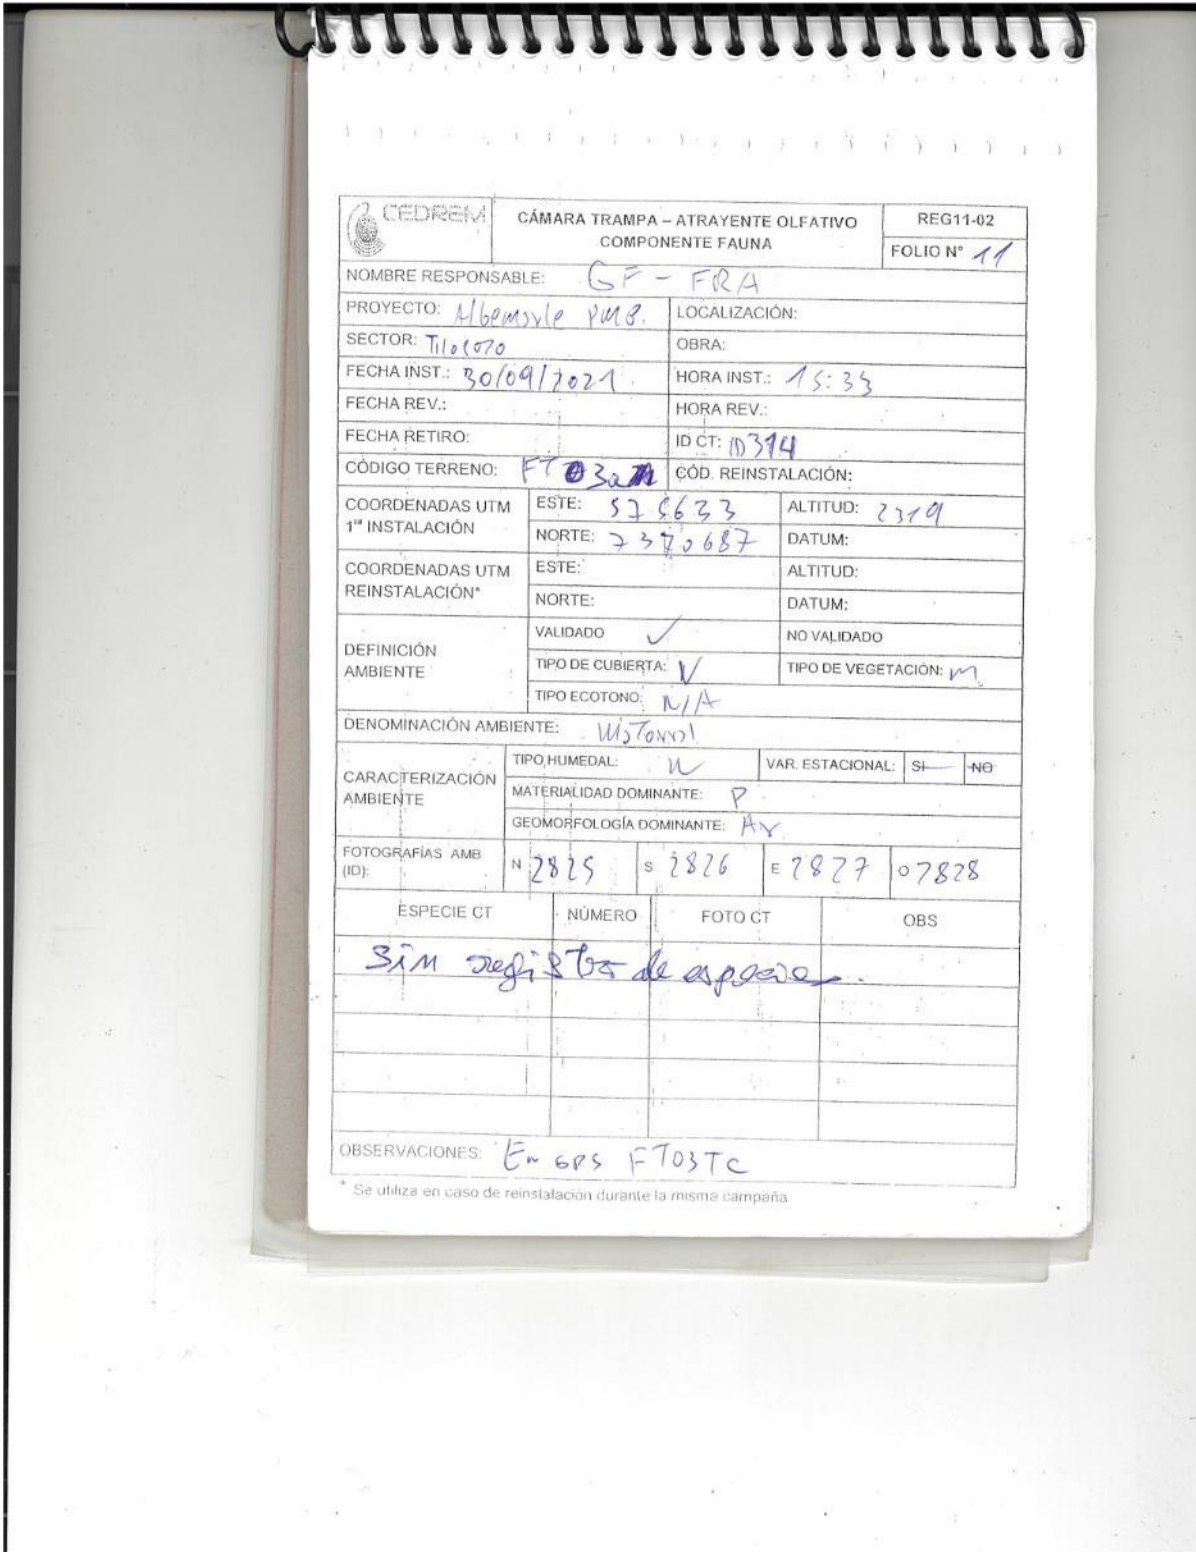 CEDREM
CÁMARA TRAMPA – ATRAYENTE OLFATIVO
COMPONENTE FAUNA
REG11-02
FOLIO N° 11
NOMBRE RESPONSABLE: GF - FRA
PROYECTO: Albemarle PMB.
LOCALIZACIÓN:
SECTOR: Tilopozo
OBRA:
FECHA INST.: 30/09/2021
HORA INST.: 15:33
FECHA REV.:
HORA REV.:
FECHA RETIRO:
ID CT: ID314
CÓDIGO TERRENO:
CÓD. REINSTALACIÓN:
COORDENADAS UTM
1ra INSTALACIÓN
ESTE: 575633
ALTITUD: 2319
NORTE: 7370687
DATUM:
COORDENADAS UTM
REINSTALACIÓN*
ESTE:
ALTITUD:
NORTE:
DATUM:
DEFINICIÓN
AMBIENTE
VALIDADO ✓
NO VALIDADO
TIPO DE CUBIERTA: V
TIPO DE VEGETACIÓN: M
TIPO ECOTONO: N/A
DENOMINACIÓN AMBIENTE: Matorral
CARACTERIZACIÓN
AMBIENTE
TIPO HUMEDAL:
VAR. ESTACIONAL: SI NO
MATERIALIDAD DOMINANTE: P
GEOMORFOLOGÍA DOMINANTE: Ar
FOTOGRAFÍAS AMB
(ID):
N 2825
S 2826
E 2827
O 2828
ESPECIE CT
NÚMERO
FOTO CT
OBS
Sin registro de especies
OBSERVACIONES: En GPS FT03TC
* Se utiliza en caso de reinstalación durante la misma campaña